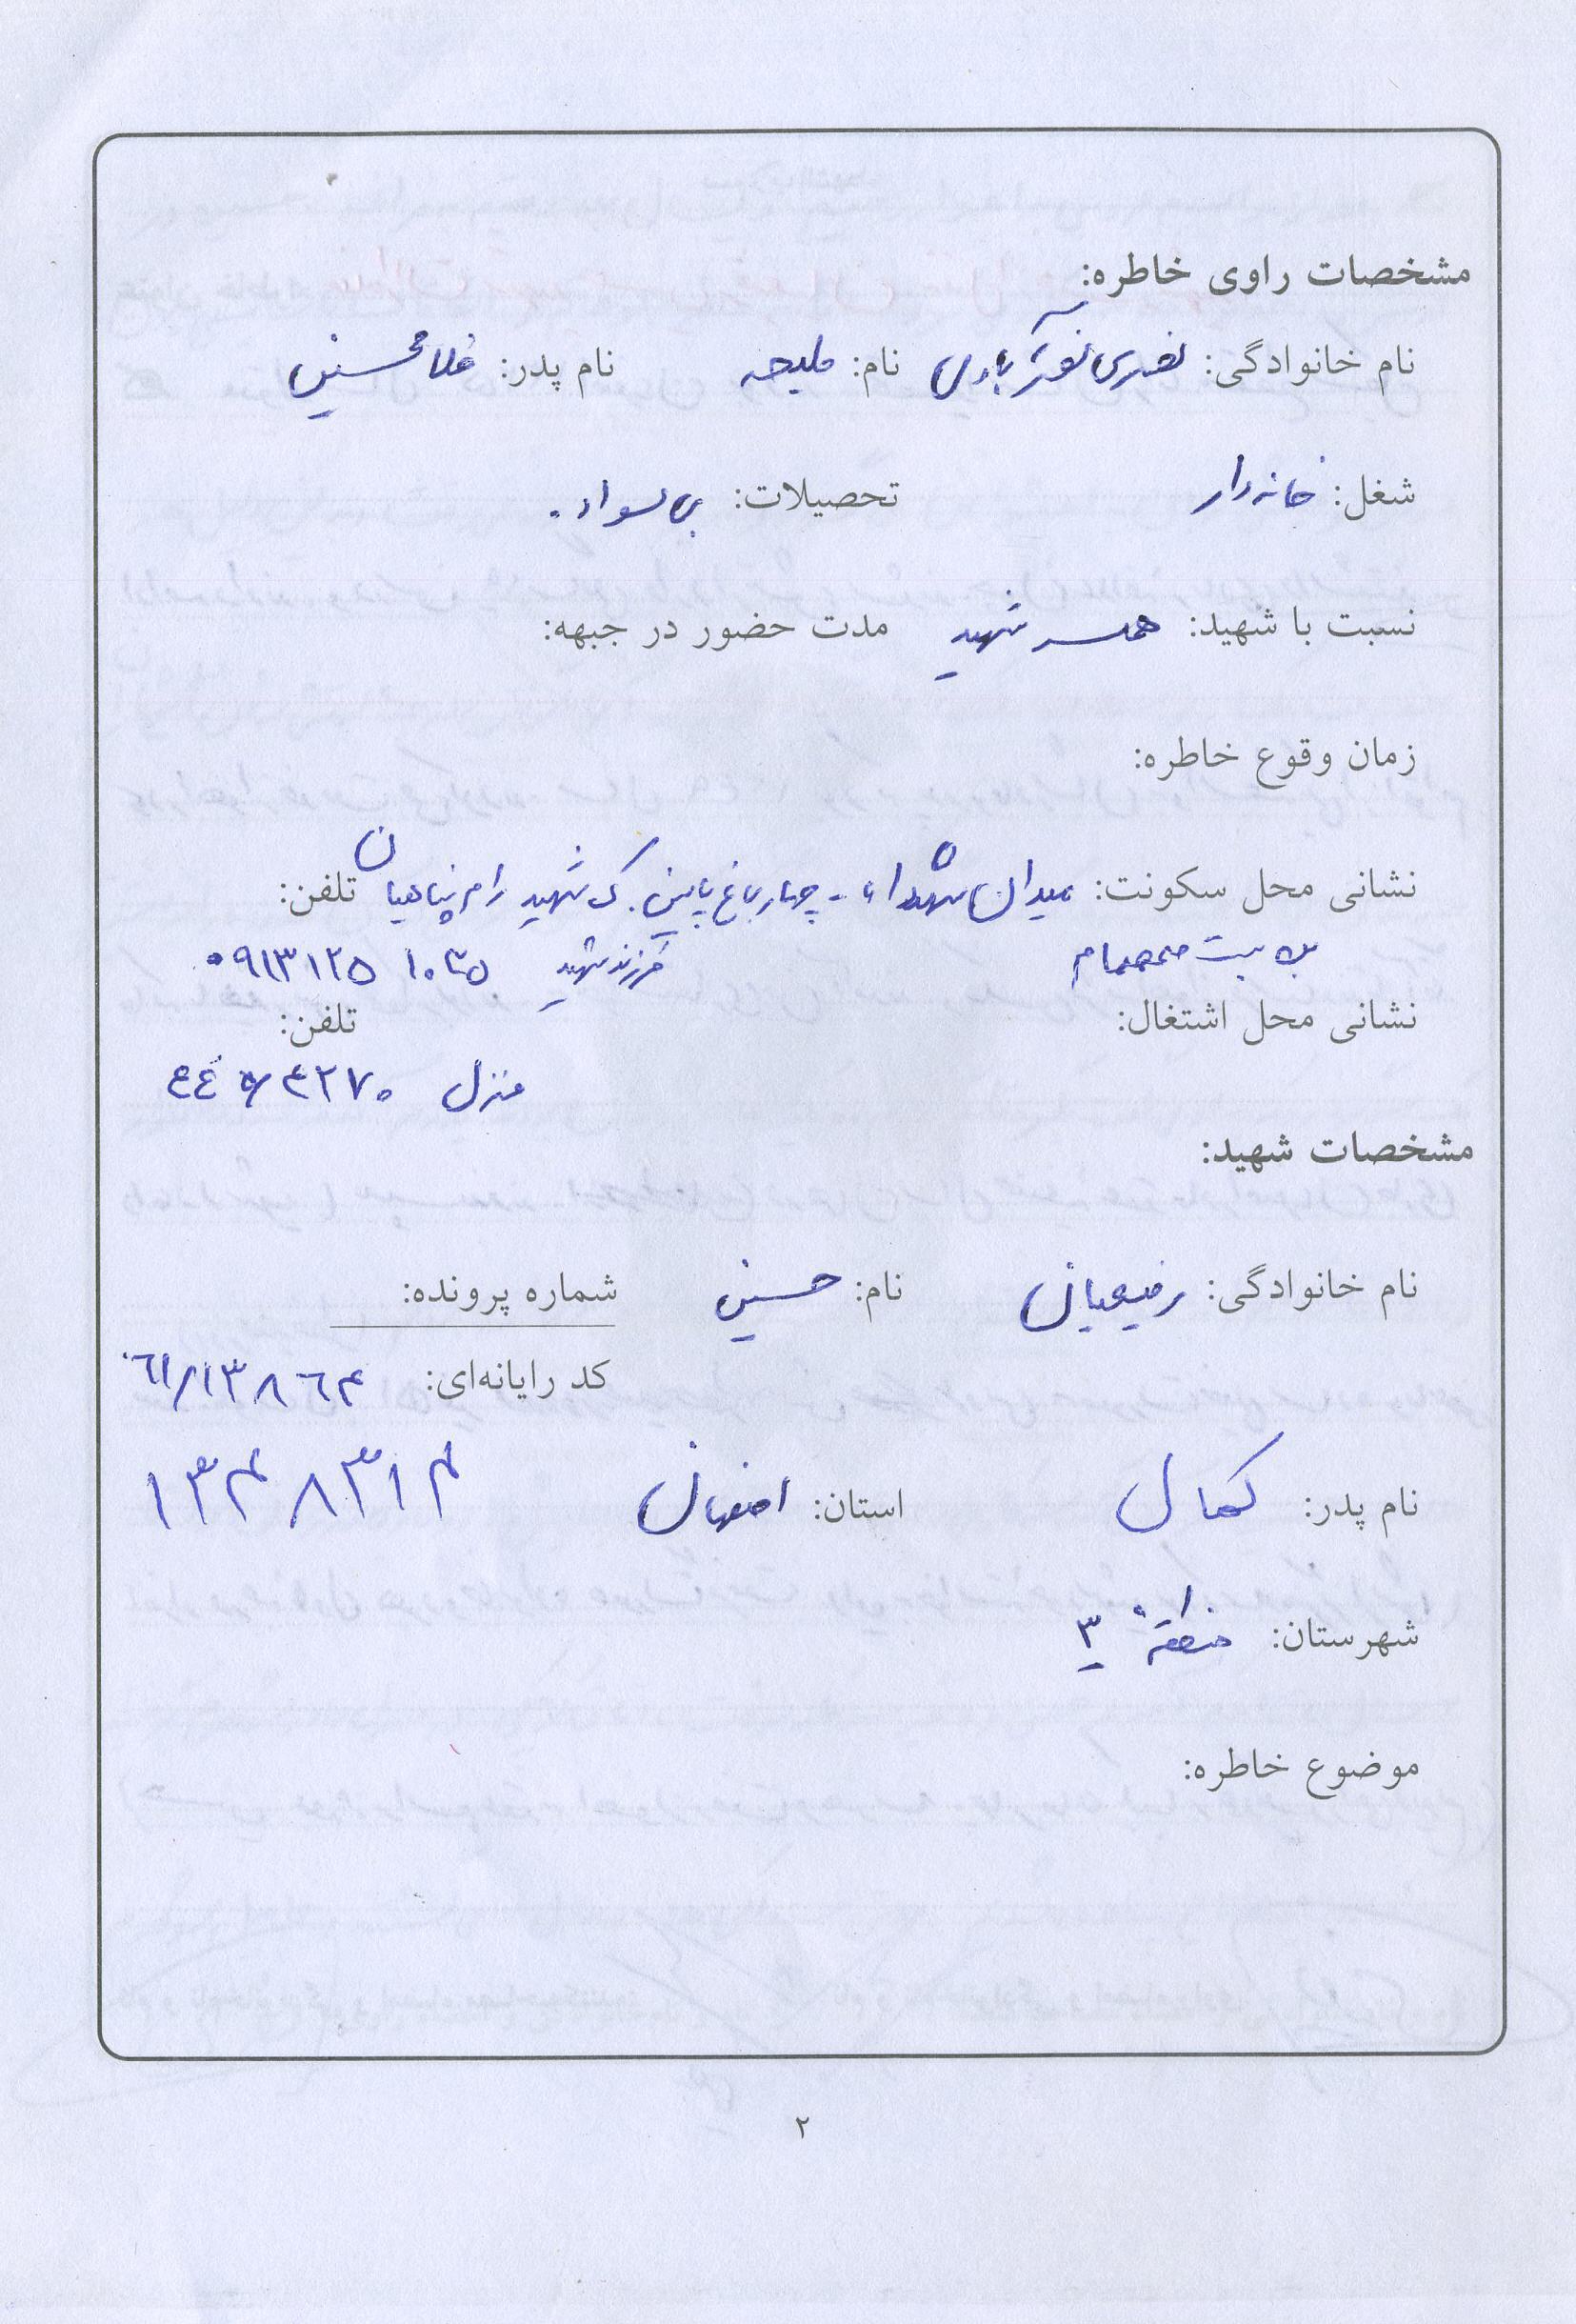 مشخصات راوی خاطره:
نام خانوادگی: نصری نصرآبادی نام: ملیحه نام پدر: غلامحسین
شغل: خانه‌دار تحصیلات: بی سواد.
نسبت با شهید: همسر شهید مدت حضور در جبهه:
زمان وقوع خاطره:
نشانی محل سکونت: میدان شهداء - چهار باغ پایین. ک شهید رام پناهیان تلفن:
بن بست صمصام فرزند شهید ۰۹۱۳۱۲۵ ۱۰۳۵
نشانی محل اشتغال: تلفن:
منزل ۴۲۷۰
مشخصات شهید:
نام خانوادگی: رفیعیان نام: حسین شماره پرونده:
کد رایانه‌ای: ۶۱/۱۳۸۶۴
نام پدر: کمال استان: اصفهان ۱۳۴۸۳۱۴
شهرستان: منطقه ۳
موضوع خاطره:
۲